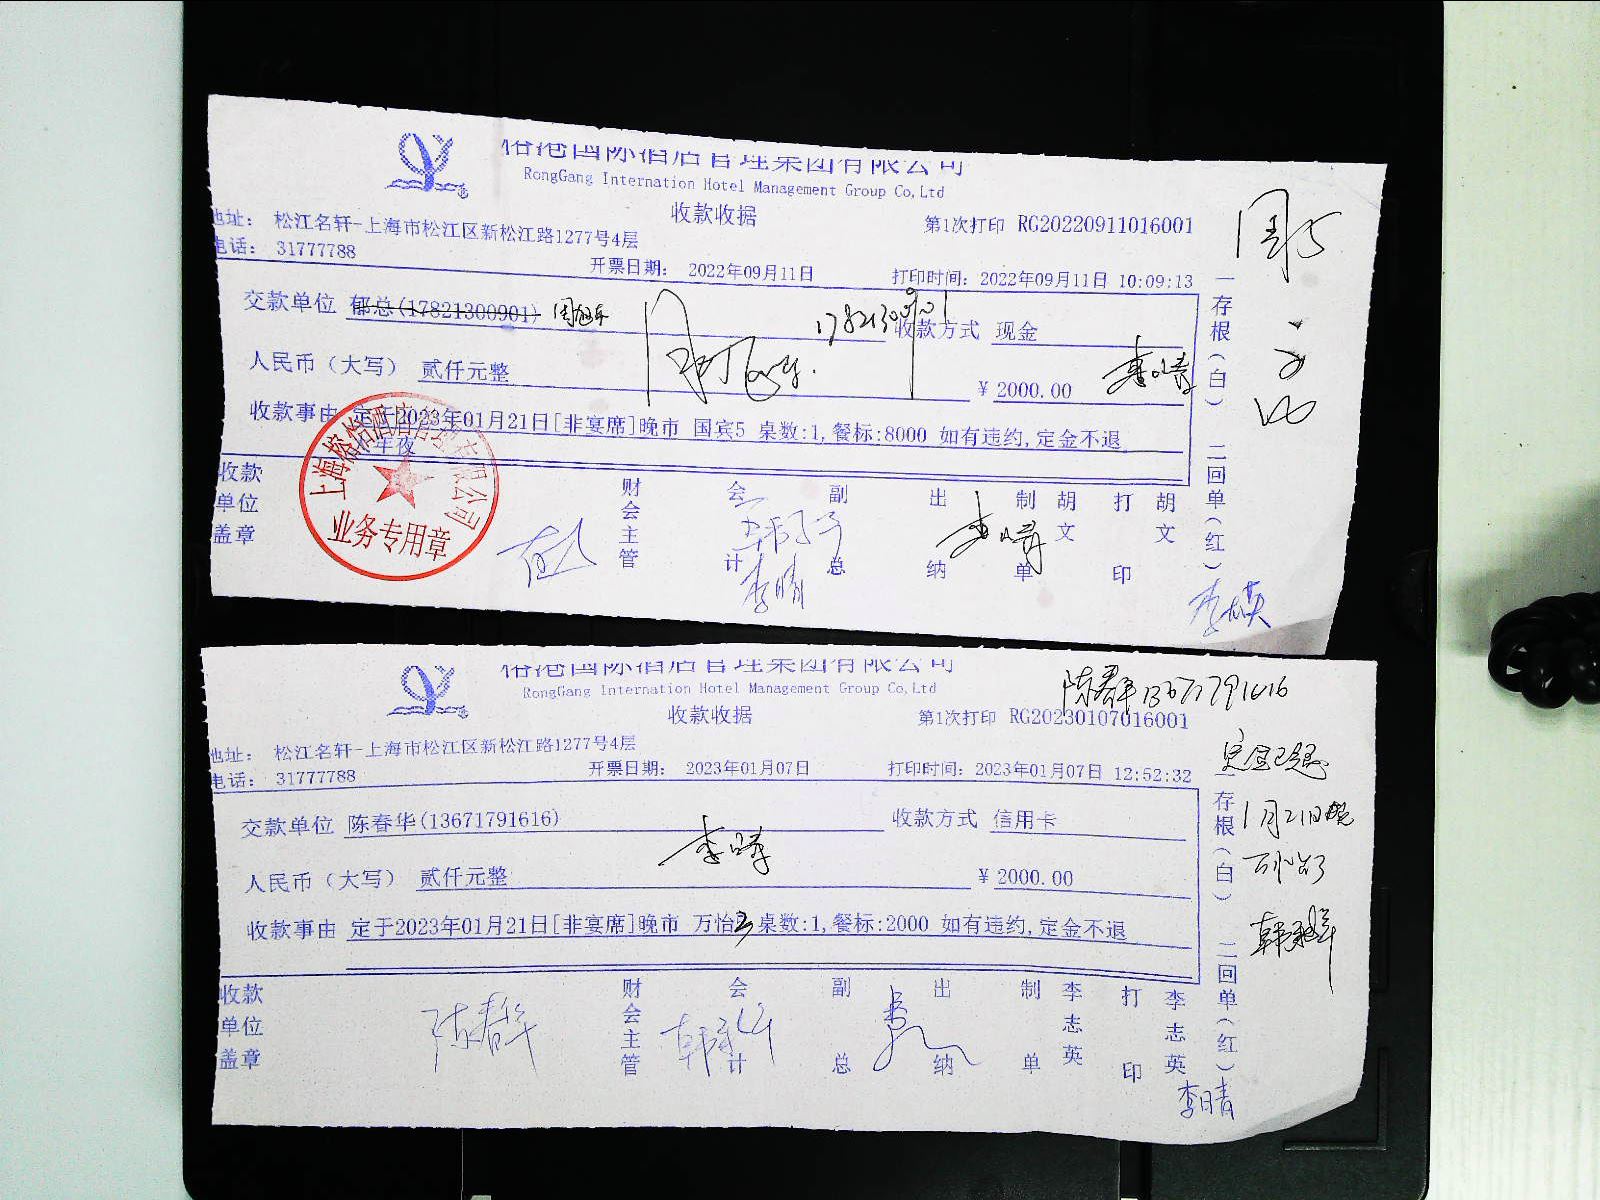 国际酒店管理集团有限公司
RongGang Internation Hotel Management Group Co,Ltd
收款收据
第1次打印 RG20220911016001
地址： 松江名轩-上海市松江区新松江路1277号4层
电话： 31777788
开票日期： 2022年09月11日
打印时间：2022年09月11日 10:09:13
交款单位 郁总(17821300901)
17821300901
收款方式 现金
人民币（大写） 贰仟元整
¥ 2000.00
李晴
收款事由 定于2023年01月21日[非宴席]晚市 国宾5 桌数:1,餐标:8000 如有违约,定金不退
年夜
业务专用章
收款单位盖章
财会主管
会计
李晴
副总
出纳
李晴
制单
胡文
打印
胡文
一存根(白) 二回单(红)
国际酒店管理集团有限公司
RongGang Internation Hotel Management Group Co,Ltd
陈春华13671791616
收款收据
第1次打印 RG20230107016001
地址： 松江名轩-上海市松江区新松江路1277号4层
电话： 31777788
开票日期： 2023年01月07日
打印时间：2023年01月07日 12:52:32
交款单位 陈春华(13671791616)
收款方式 信用卡
李晴
人民币（大写） 贰仟元整
¥ 2000.00
收款事由 定于2023年01月21日[非宴席]晚市 万怡 桌数:1,餐标:2000 如有违约,定金不退
收款单位盖章
陈春华
财会主管
会计
副总
出纳
制单
李志英
打印
李志英
一存根(白) 二回单(红)
1月21日晚
李晴